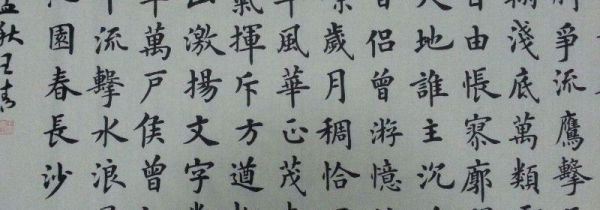 爭流鷹擊
淺底萬類
自由悵寥廓
大地誰主沉
百侶曾游憶
歲月稠恰
年風華正茂
氣揮斥方遒
激揚文字
年萬戶侯曾
中流擊水浪
園春長沙
孟秋王